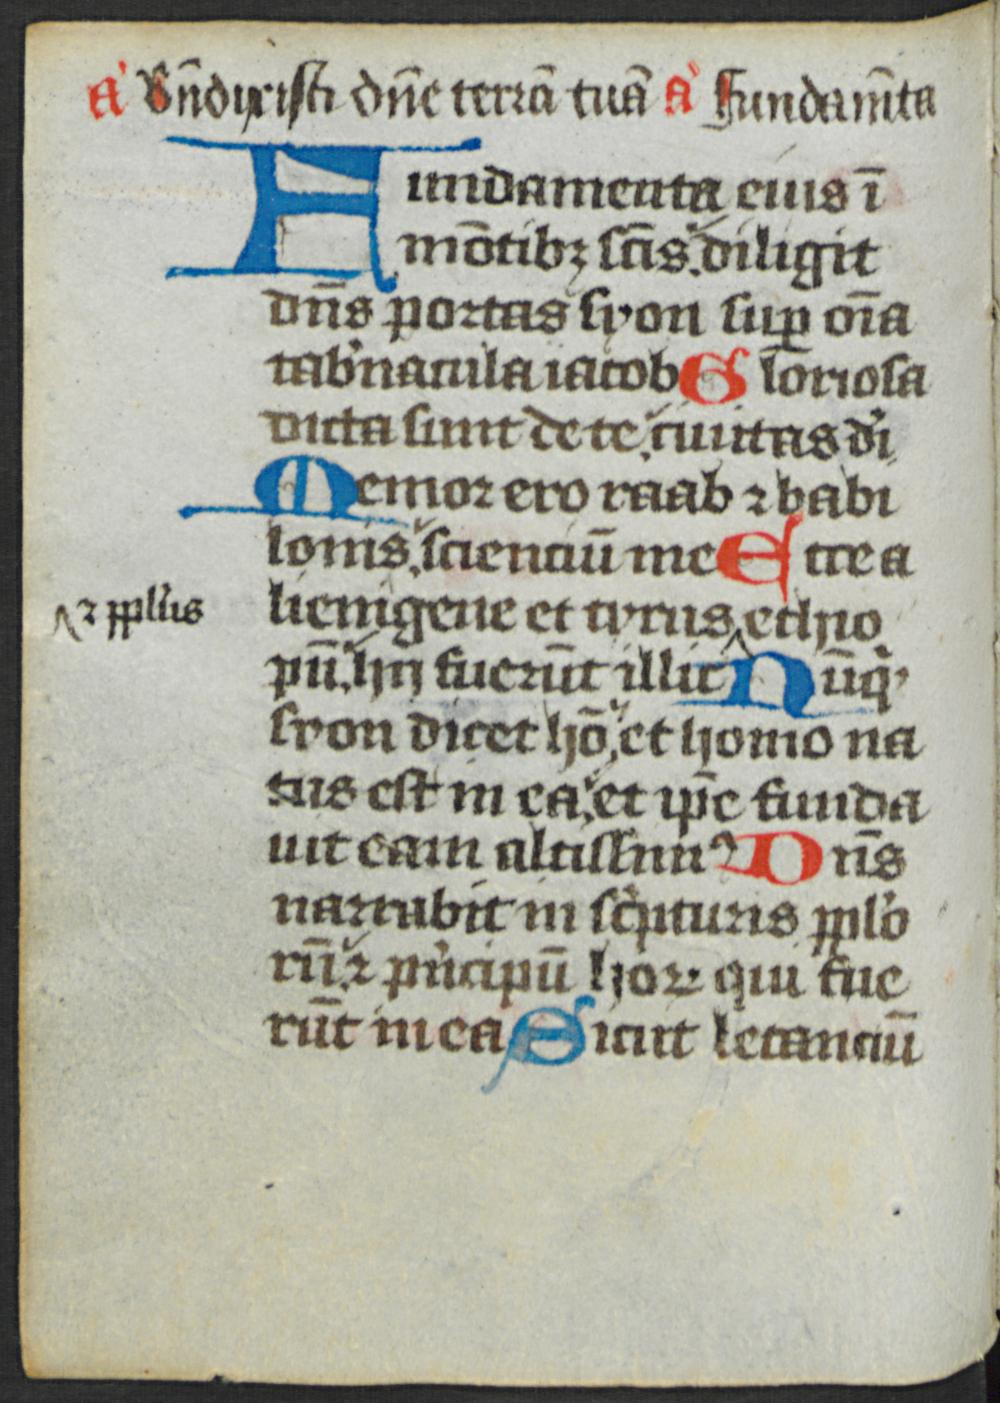 a' Bn̄dixisti dn̄e terrā tuā a' Fundam̄ta
Fundamenta eius ī
mōtibꝫ sc̄is. diligit
dn̄s portas syon suꝑ oīa
tab'nacula iacob Gloriosa
dicta sunt de te, ciuitas d'i
Memor ero raab ⁊ babi
lonis, scienciū me Ecce a
⁊ ppl'us
lienigene et tyrus ethyo
pū, hij fuerūt illic Nūq'
syon dicet hō, et homo na
tus est in ea, et ip̄e funda
uit eam altissim⁹ Dn̄s
narrabit in sc'pturis ppl'o
rū ⁊ pn'cipū hoꝝ qui fue
rūt in ea Sicut letanciū